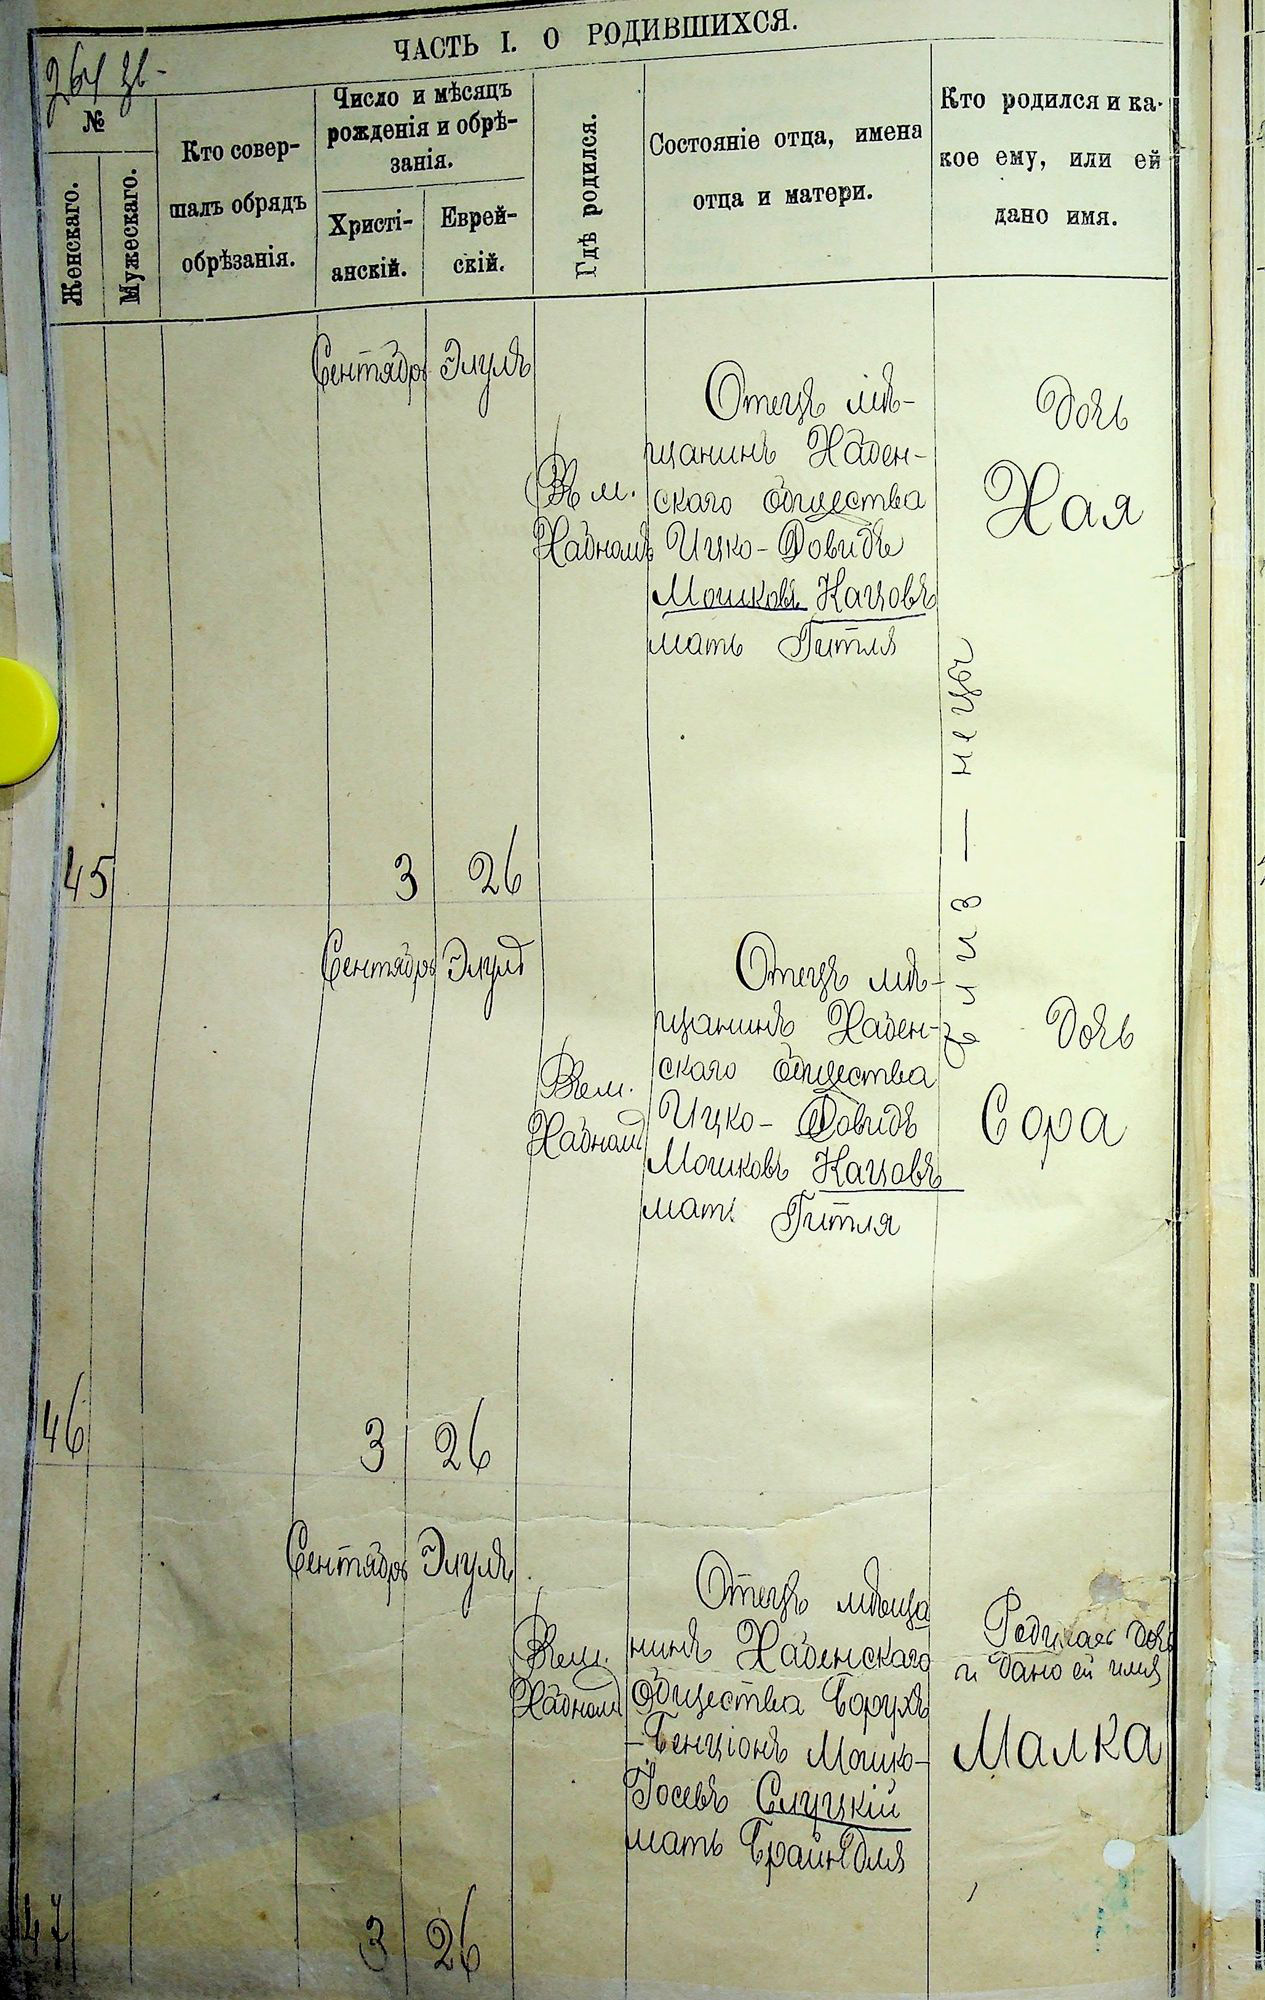 ЧАСТЬ I. О РОДИВШИХСЯ.
264
№
Женскаго.
Мужескаго.
Кто совер-
шалъ обрядъ
обрѣзанія.
Число и мѣсяцъ
рожденія и обрѣ-
занія.
Христі-
анскій.
Еврей-
скій.
Гдѣ родился.
Состояніе отца, имена
отца и матери.
Кто родился и ка-
кое ему, или ей
дано имя.
45
Сентябрь
3
Элулъ
26
Въ м.
Отецъ мѣ-
щанинъ
скаго общества
Ицко-Довидъ
Мошковъ Кацовъ
мать Гитля
Дочь
Хая
близ-нецы
46
Сентябрь
3
Элулъ
26
Въ м.
Отецъ мѣ-
щанинъ
скаго общества
Ицко-Довидъ
Мошковъ Кацовъ
мать Гитля
Дочь
Сора
47
Сентябрь
3
Элулъ
26
Въ м.
Отецъ мѣща
нинъ
общества Борухъ
-Бенціонъ Мошко-
Іосевъ Слуцкій
мать Брайндля
Родилась дочь
и дано ей имя
Малка